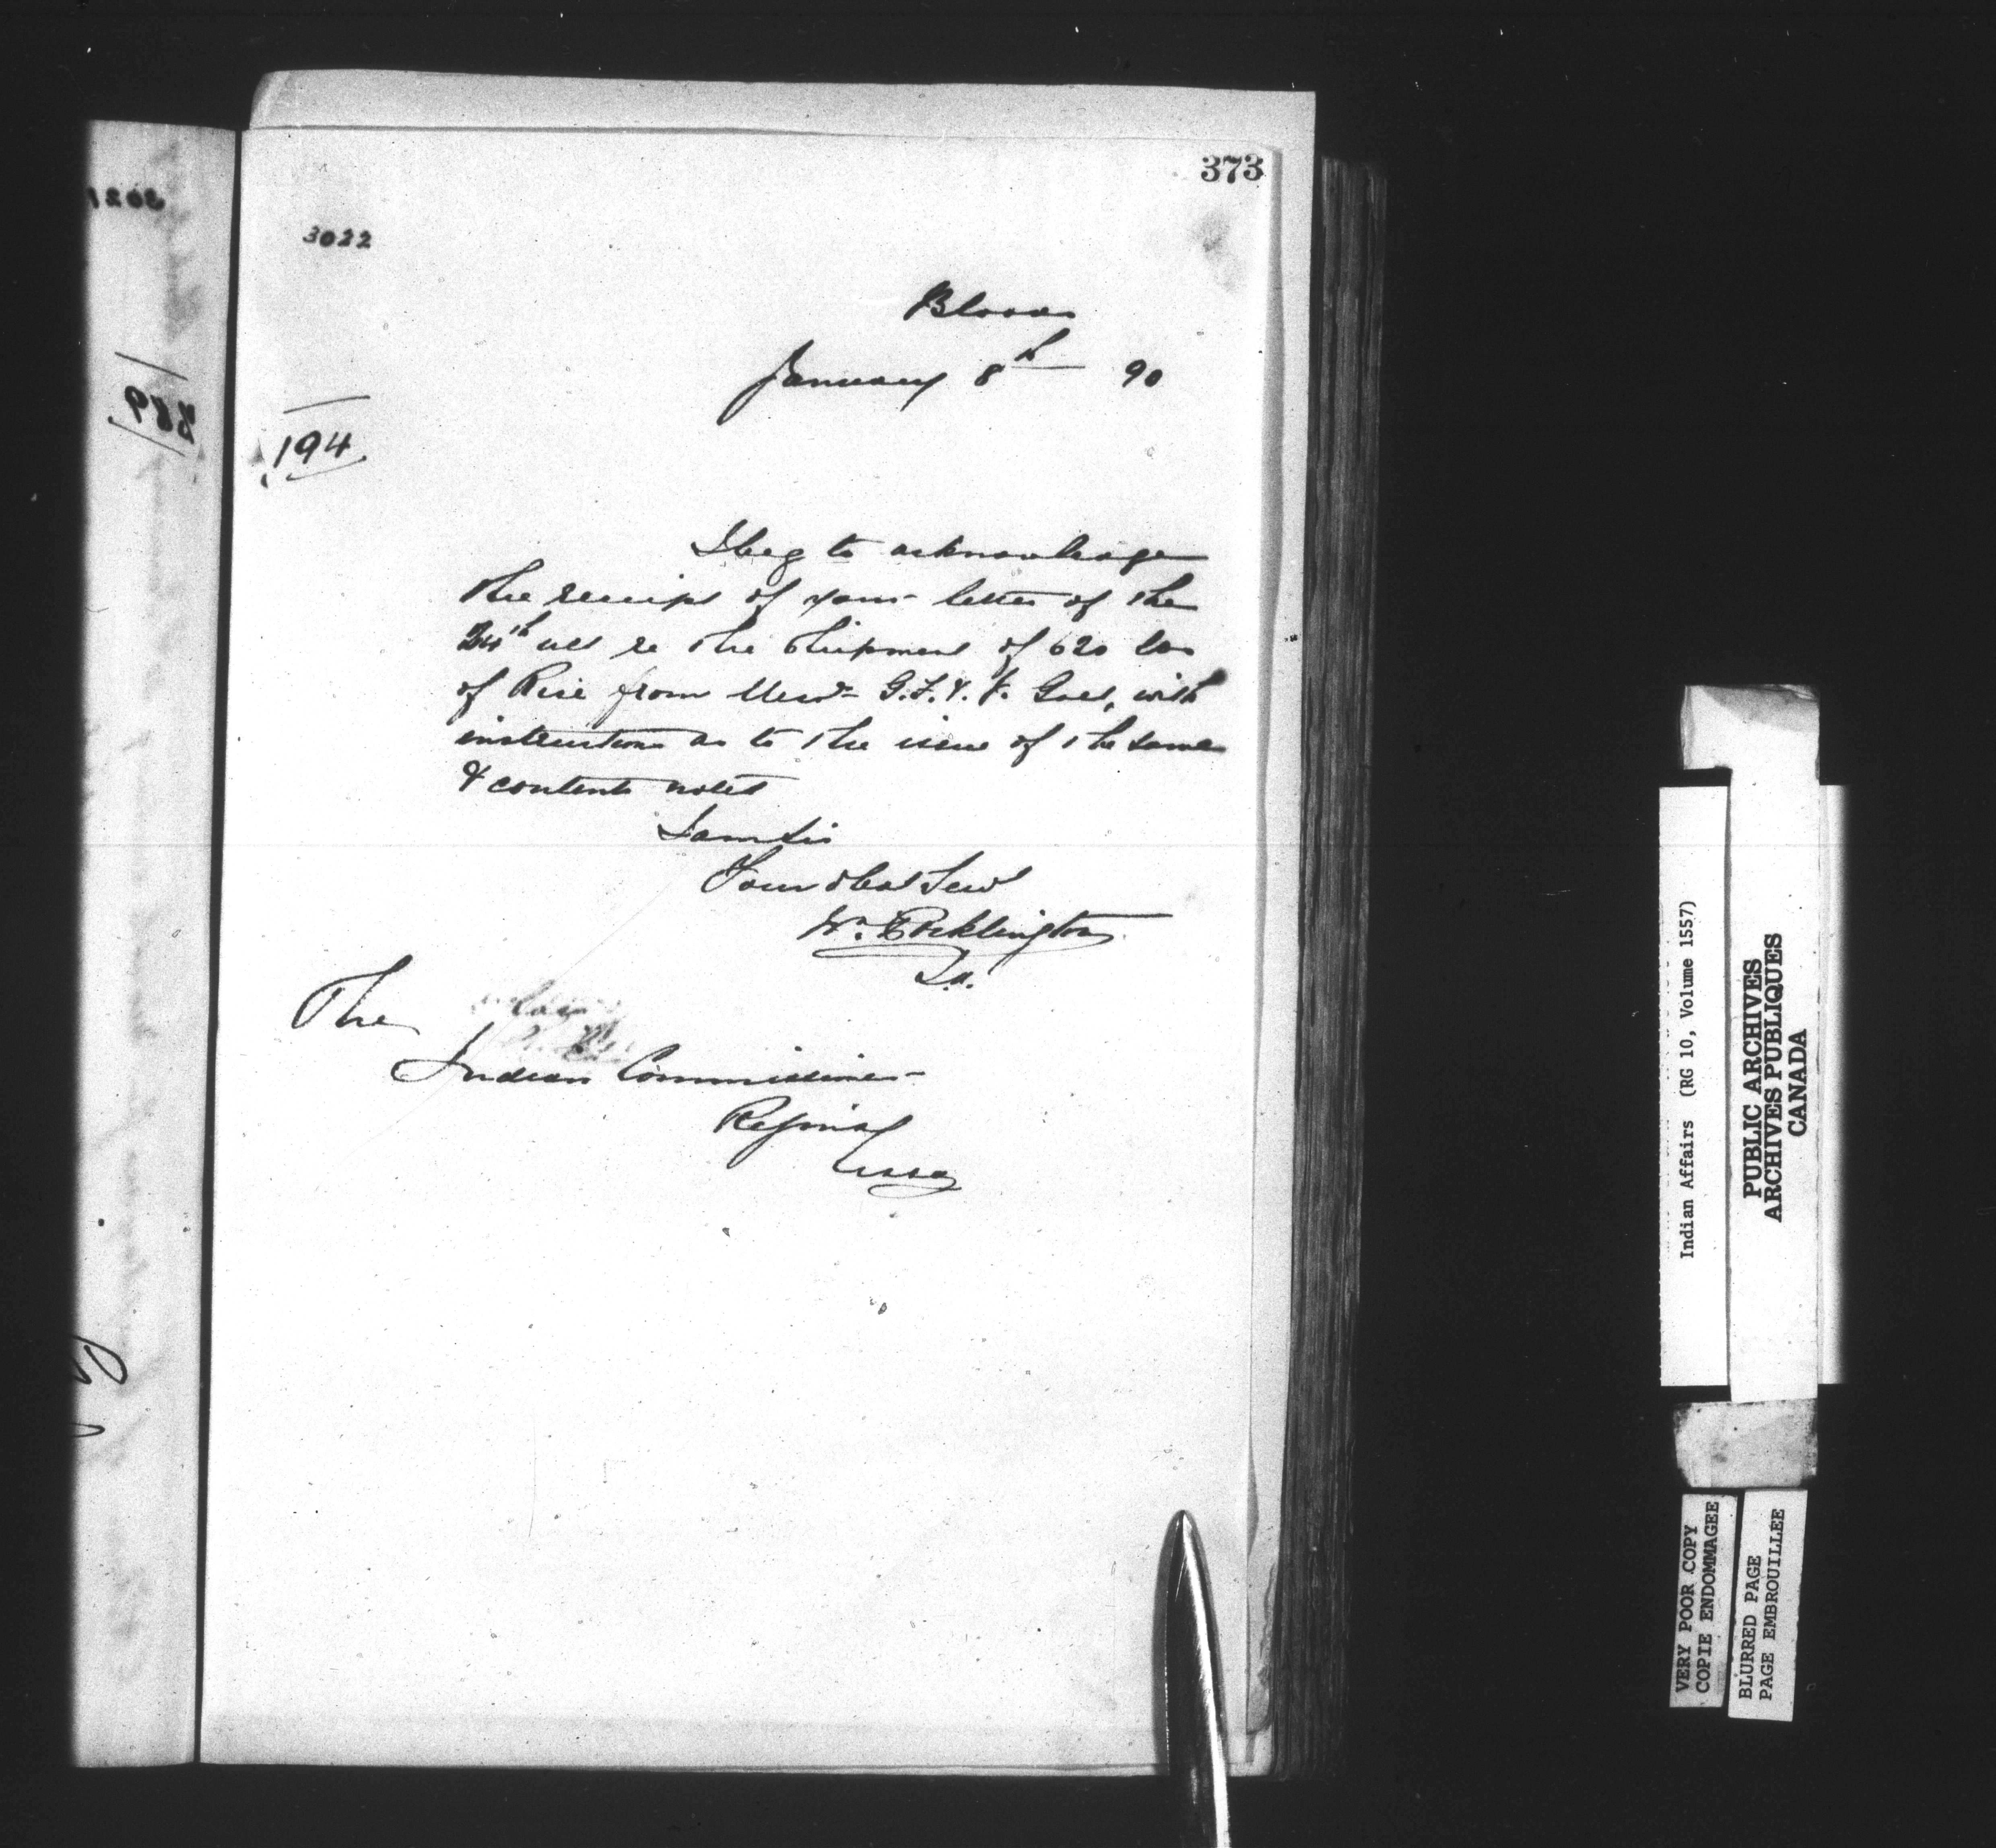 373
3022
Bloods
January 8th 90
194
I beg to acknowledge
the receipt of your letter of the
24th ult re the shipment of 620 lbs
of Rice from Messrs G.F. & J. Galt, with
instructions as to the issue of the same
& contents noted
I am Sir
Your obed Servt
Wm. Pocklington
I.A.
The
Indian Commissioner
Regina
Assa
3021
389
Indian Affairs (RG 10, Volume 1557)
PUBLIC ARCHIVES
ARCHIVES PUBLIQUES
CANADA
VERY POOR COPY
COPIE ENDOMMAGEE
BLURRED PAGE
PAGE EMBROUILLEE